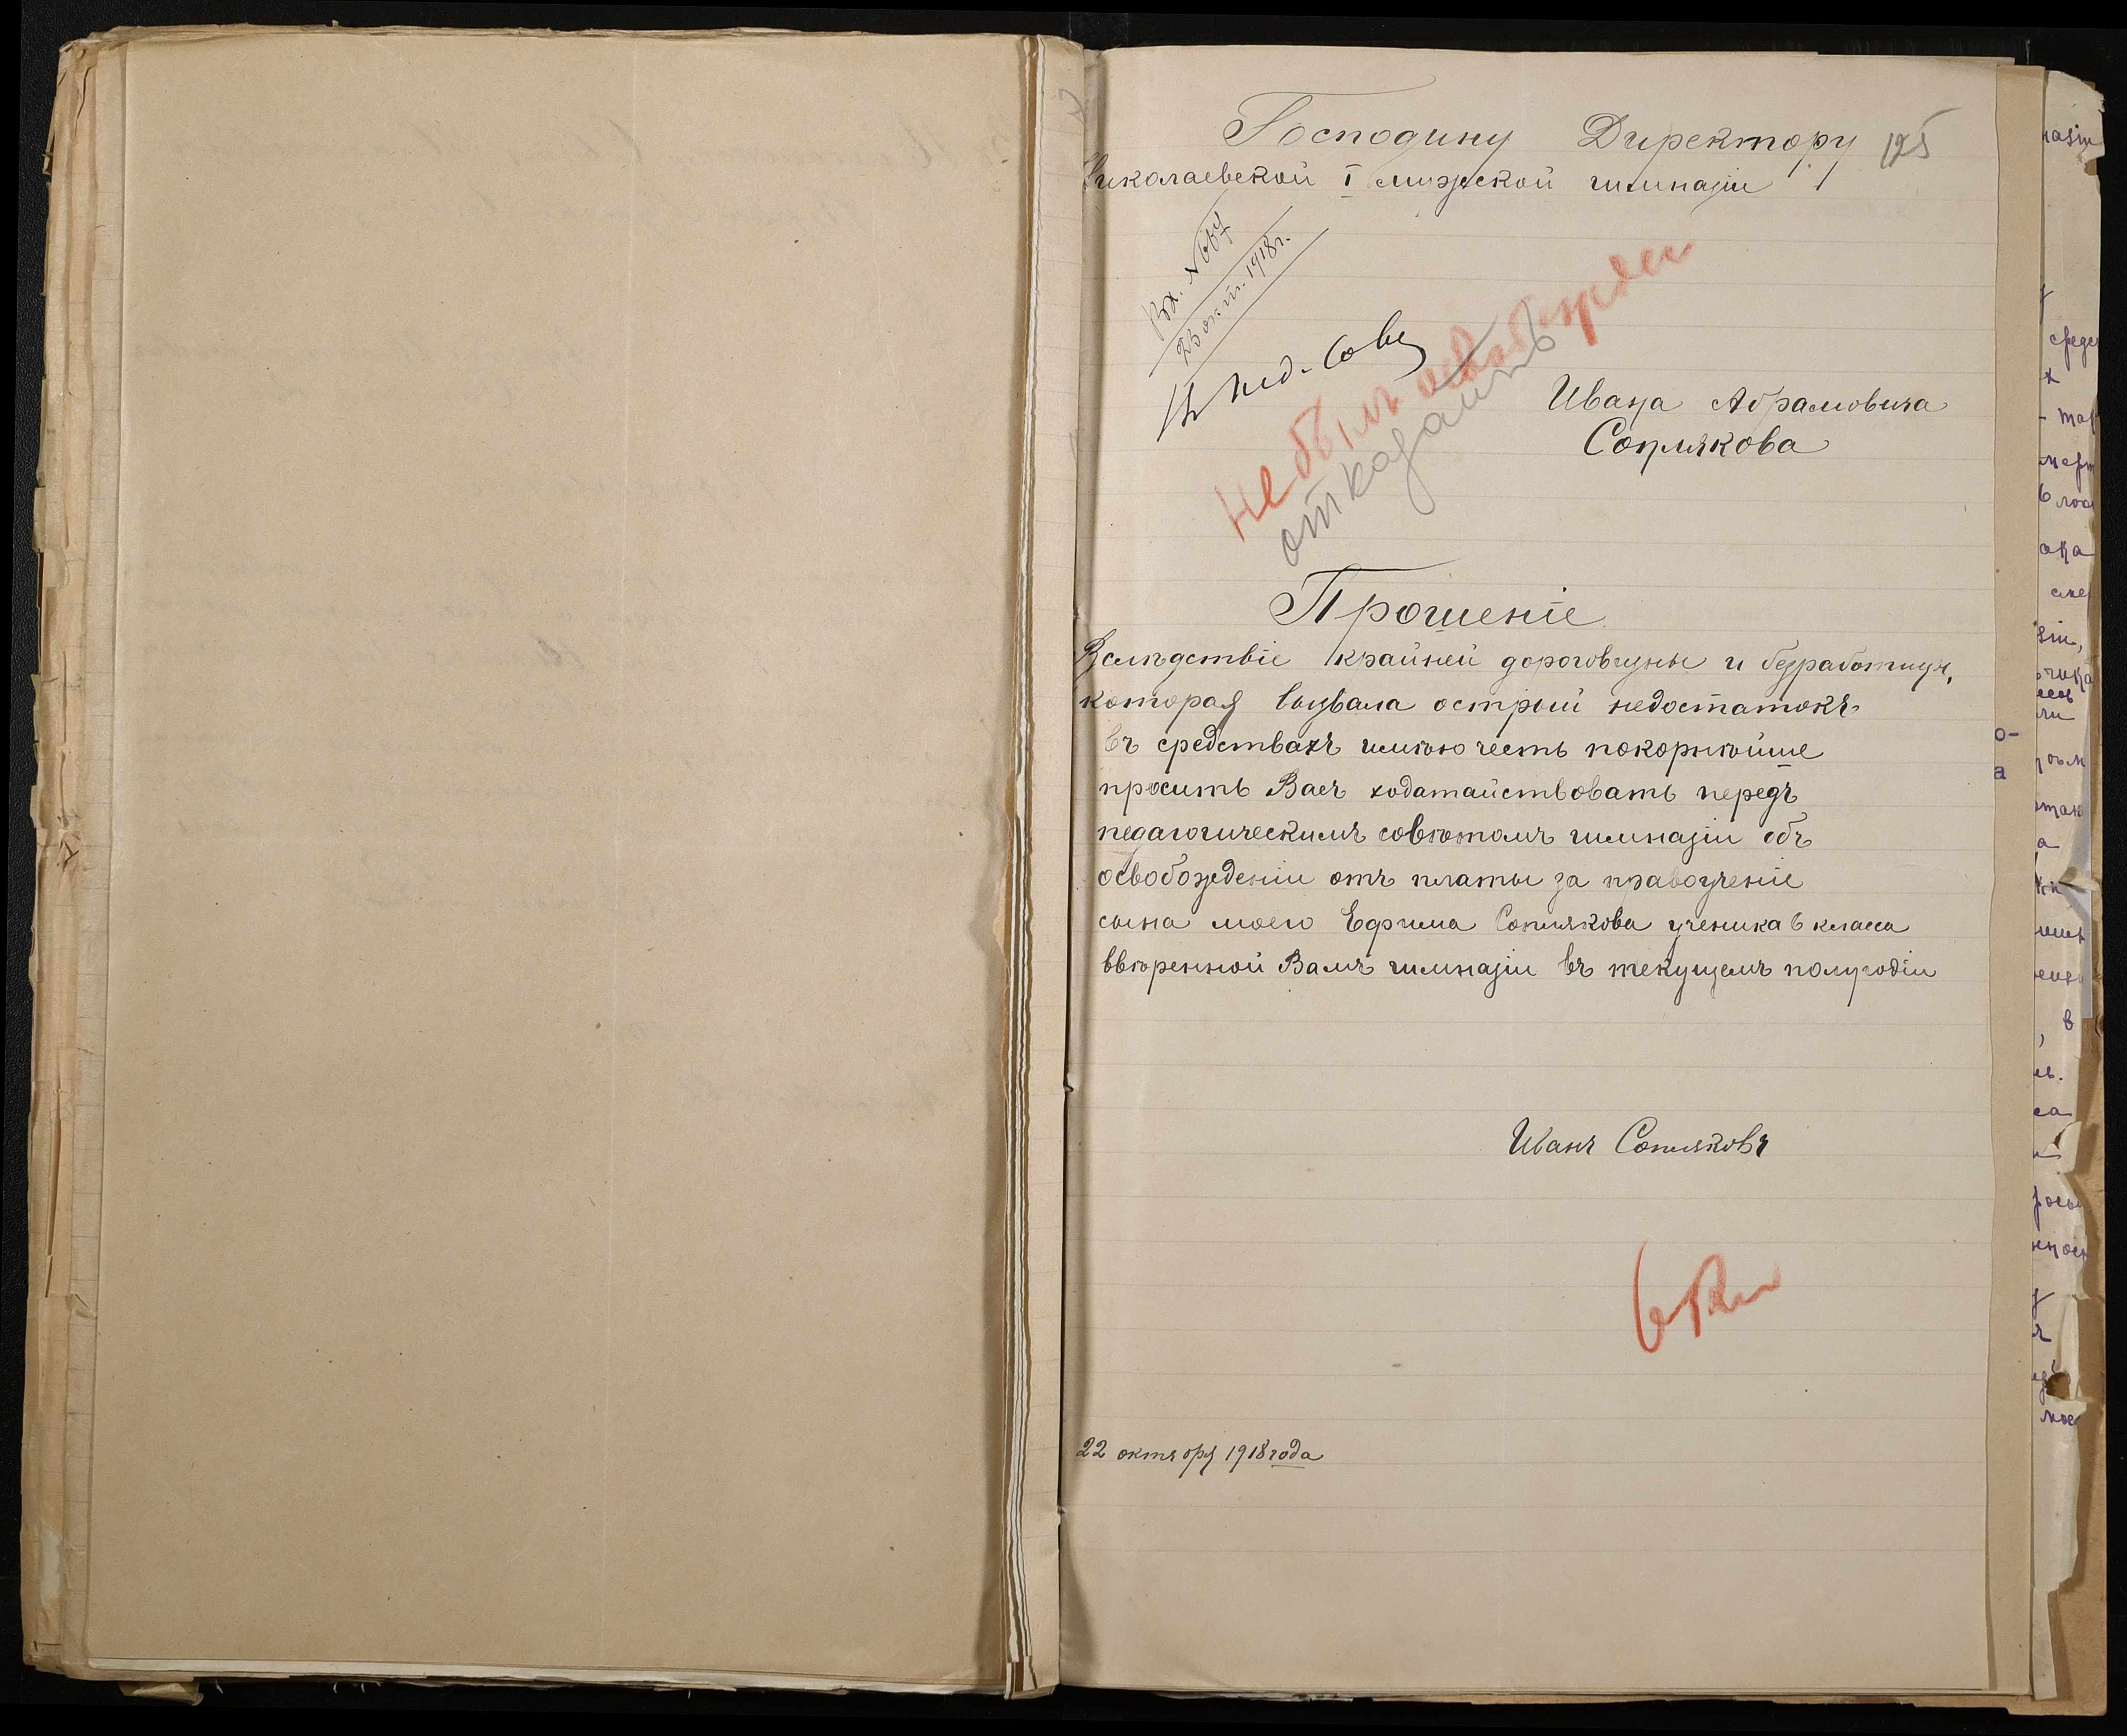 Господину Директору
Николаевской I мужской гимназіи
125
Вх. №
23 окт. 1918 г.
В пед. Сове
Не былъ освобожден
отказать
Ивана Абрамовича
Соплякова
Прошеніе
Вслѣдствіе крайней дороговизны и безработицы,
которая вызвала острый недостатокъ
въ средствахъ имѣю честь покорнѣйше
просить Васъ ходатайствовать передъ
педагогическимъ совѣтомъ гимназіи объ
освобожденіи отъ платы за правоученіе
сына моего Ефима Соплякова ученика 6 класса
ввѣренной Вамъ гимназіи въ текущемъ полугодіи
Иванъ Сопляковъ
22 октября 1918 года